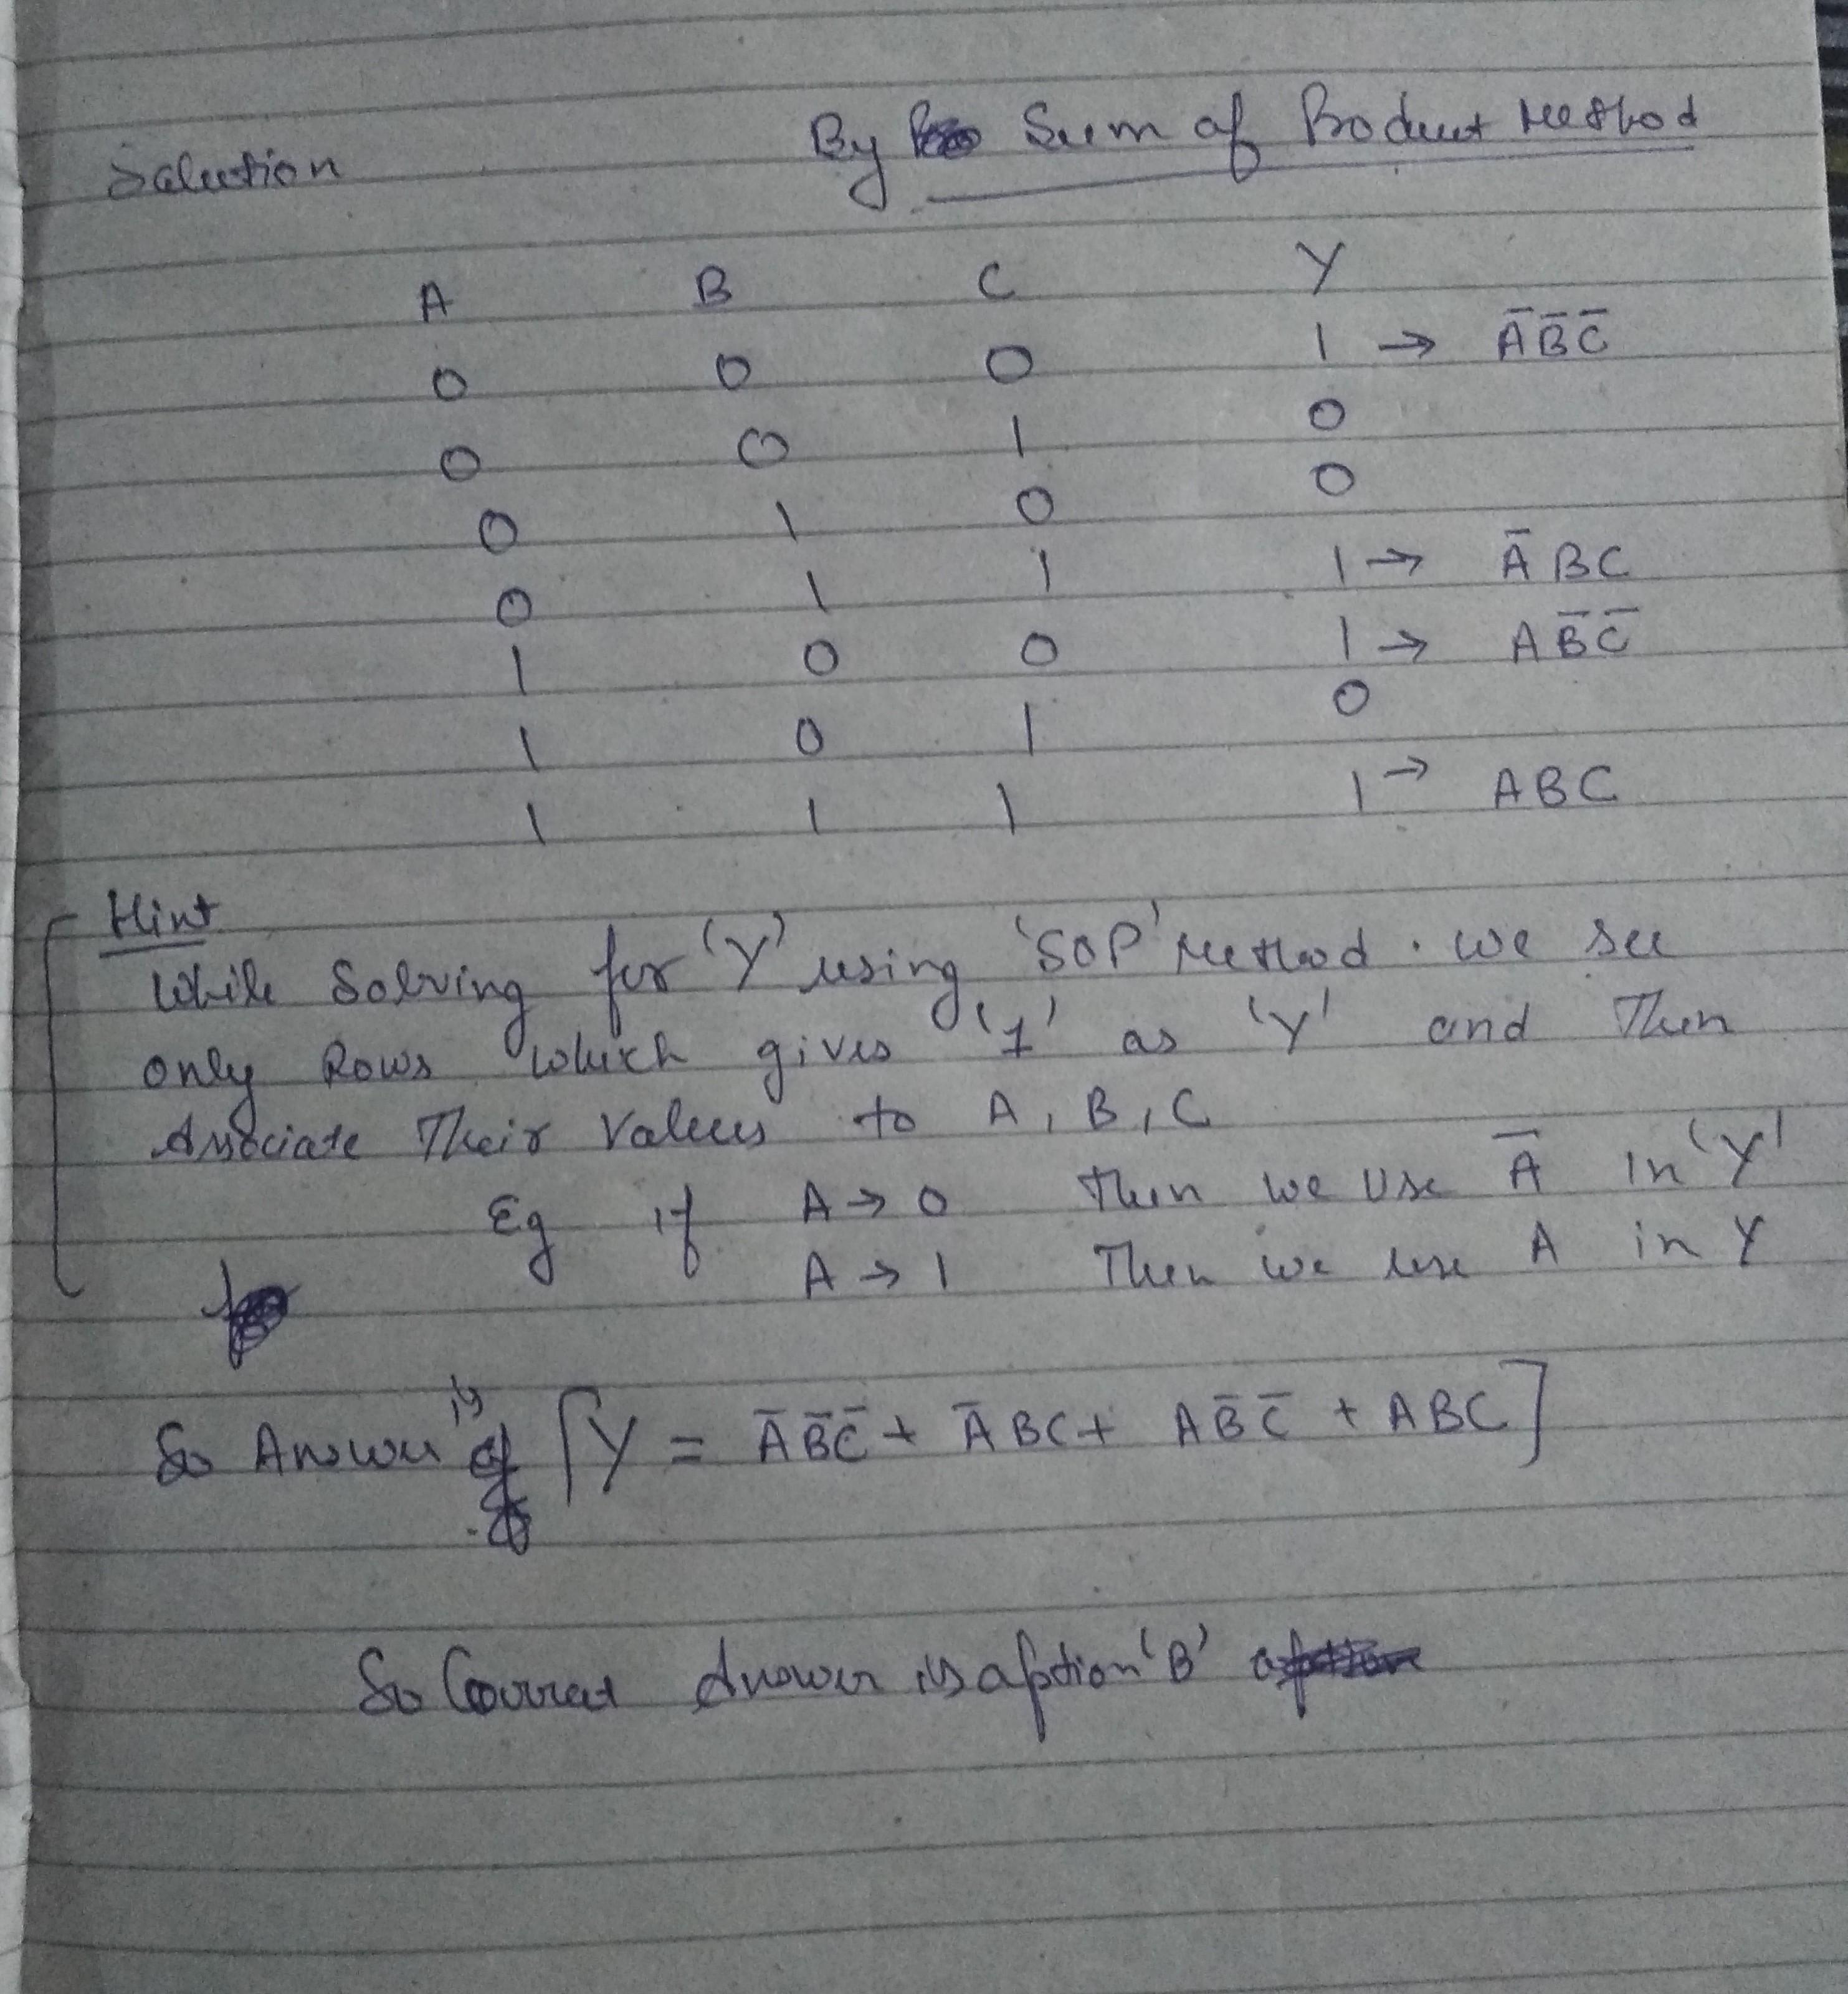 Solution By Sum of Product Method
A B C Y
0 0 0 1 → A̅ B̅ C̅
0 0 1 0
0 1 0 0
0 1 1 1 → A̅ B C
1 0 0 1 → A B̅ C̅
1 0 1 0
1 1 1 1 → A B C
Hint
While Solving for 'Y' using 'SOP' Method. We see
only Rows which gives '1' as 'Y' and Then
Associate Their Values to A, B, C
Eg if A → 0 then we use A̅ in 'Y'
A → 1 Then we use A in Y
So Answer is [Y = A̅ B̅ C̅ + A̅ B C + A B̅ C̅ + A B C]
So Correct Answer is option 'B'